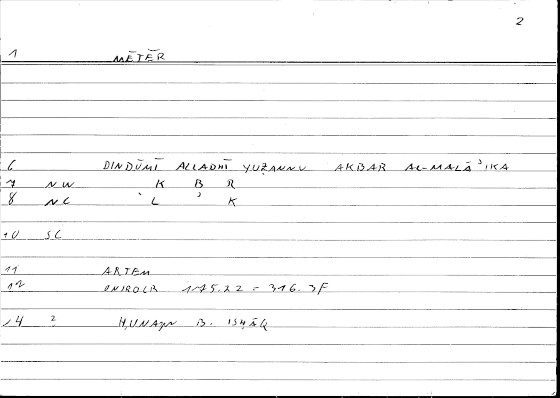 2
1 MĒTĒR
6 DINDŪMĪ ALLADHĪ YUẒANNU AKBAR AL-MALĀʾIKA
7 NW K B R
8 NC ʿ L ʾ K
10 SC
11 ARTEM
12 ONIROCR 175.22 = 316.3F
14 ? ḤUNAYN B. ISḤĀQ